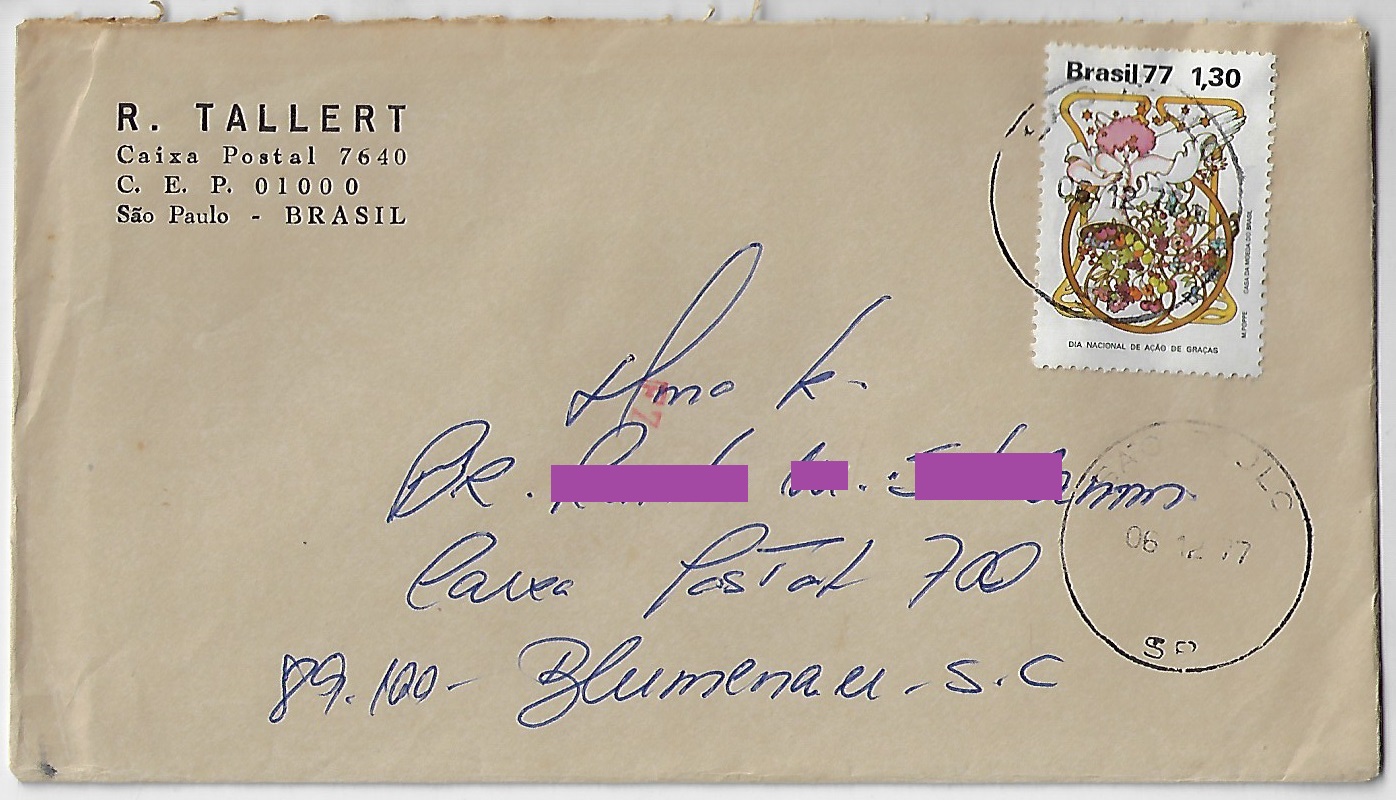 R. TALLERT
Caixa Postal 7640
C. E. P. 01000
São Paulo - BRASIL
Brasil 77 1,30
CASA DA MOEDA DO BRASIL
M. POPPE
DIA NACIONAL DE AÇÃO DE GRAÇAS
Ilmo
DR.
Caixa Postal 700
89.100- Blumenau - S.C
SÃO
06 12 77
SP